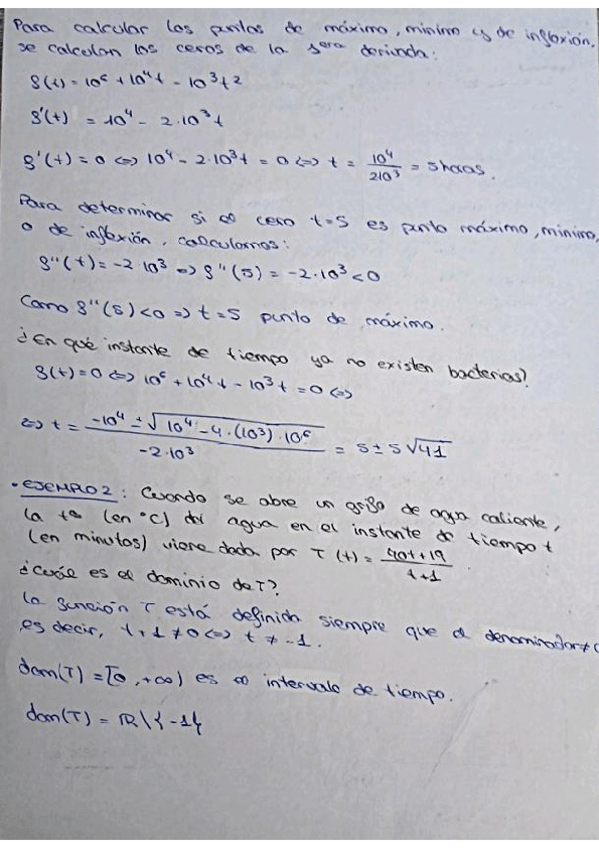 Para calcular los puntos de máximo, mínimo y de inflexión,
se calculan los ceros de la 1era derivada:
f(t) = 10⁶ + 10⁴t - 10³t²
f'(t) = 10⁴ - 2·10³t
f'(t) = 0 <=> 10⁴ - 2·10³t = 0 <=> t = 10⁴/2·10³ = 5 horas.
Para determinar si el cero t=5 es punto máximo, mínimo,
o de inflexión, calculamos:
f''(t) = -2·10³ => f''(5) = -2·10³ < 0
Como f''(5) < 0 => t = 5 punto de máximo.
¿En qué instante de tiempo ya no existen bacterias?
f(t) = 0 <=> 10⁶ + 10⁴t - 10³t = 0 <=>
<=> t = -10⁴ ± √10⁴ - 4·(10³)·10⁶ / -2·10³ = 5 ± 5√41
·EJEMPLO 2: Cuando se abre un grifo de agua caliente,
la tª (en °C) del agua en el instante de tiempo t
(en minutos) viene dada por T(t) = 40t+19/t+1
¿Cuál es el dominio de T?
la función T está definida siempre que el denominador≠0
es decir, t+1 ≠ 0 <=> t ≠ -1.
dom(T) = [0, +∞) es el intervalo de tiempo.
dom(T) = ℝ\{-1}